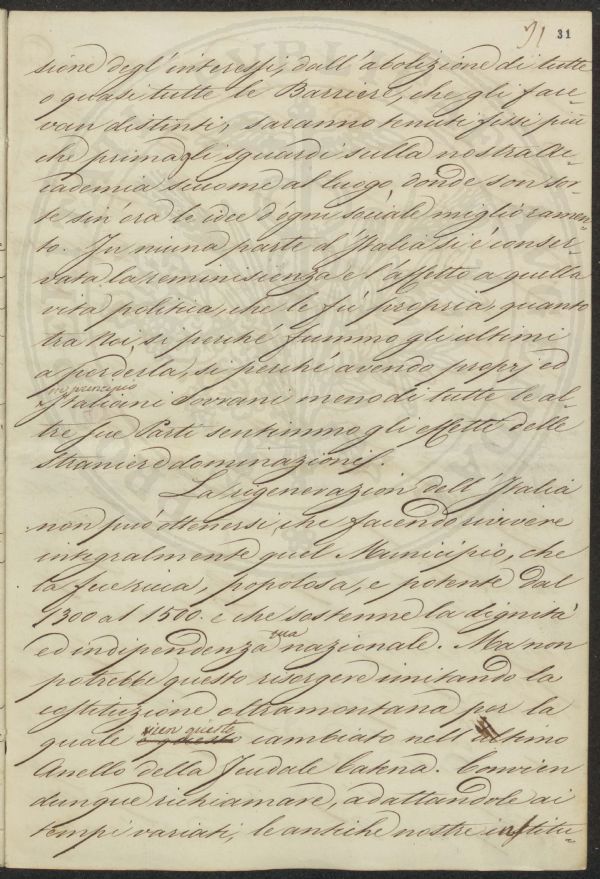 31
sione degl'interessi, dall'abolizione di tutte
o quasi tutte le Barriere, che gli face-
van distinti, saranno tenuti fissi più
che prima gli sguardi sulla nostra Ac-
cademia siccome al luogo, donde son sor-
te sin'ora le idee d'ogni sociale miglioramen-
to. In niuna parte d'Italia si è conser-
vata la reminisienza e l'affetto a quella
vita politica, che le fù propria, quanto
tra Noi, si perché fummo gli ultimi
a perderla, si perché avendo proprj ed
Italiani Sovrani meno di tutte le al-
tre sue Parti sentimmo gli effetti delle
straniere dominazioni.
La rigenerazion dell'Italia
non può ottenersi, che facendo rivivere
integralmente quel Municipio, che
la fue ricca, popolosa, e potente dal
1300 al 1500. e che sostenne la dignità
ed indipendenza sua nazionale. Ma non
potrebbe questo risorgere imitando la
costituzione oltramontana per la
quale vien questo cambiato nell'ultimo
Anello della Feudale Catena. Convien
dunque richiamare, adattandole ai
tempi variati, le antiche nostre institu-